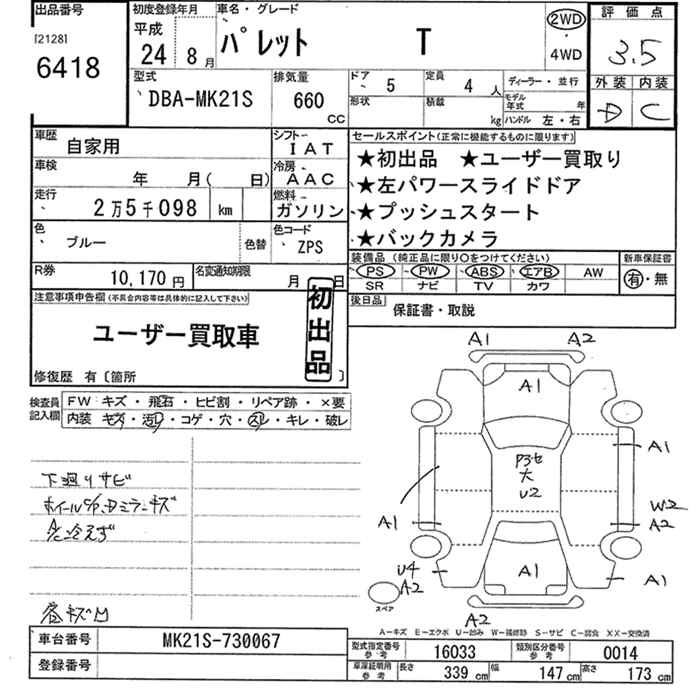 出品番号
[2128]
6418
初度登録年月
平成
24年8月
車名・グレード
パレット T
2WD
・
4WD
評価点
3.5
外装 内装
D C
型式
DBA-MK21S
排気量
660
CC
ドア 5
定員 4 人
形状
積載 kg
ディーラー・並行
モデル年式 年
ハンドル 左・右
車歴
自家用
シフト
IAT
車検 年 月( 日)
冷房
AAC
走行
2万5千098 km
燃料
ガソリン
色
ブルー
色替
色コード
ZPS
R券
10,170円
名変通知期限
月 日
セールスポイント(正常に機能するものに限ります)
★初出品 ★ユーザー買取り
★左パワースライドドア
★プッシュスタート
★バックカメラ
装備品(純正品に限り○をつけてください)
PS PW ABS エアB AW
SR ナビ TV カワ
新車保証書
有・無
後日品
保証書・取説
注意事項申告欄(不具合内容等は具体的に記入して下さい)
初出品
ユーザー買取車
修復歴 有〔箇所 〕
検査員記入欄
FW キズ・飛石・ヒビ割・リペア跡・×要
内装 キズ・汚れ・コゲ・穴・スレ・キレ・破レ
下廻りサビ
A/C冷えず
A1 A2
A1
A1
P3セ
大
U2
A1
W2
A2
U4
A2
A1
A1
A2
スペア
A-キズ E-エクボ U-凹み W-補修跡 S-サビ C-腐食 XX-交換済
車台番号
MK21S-730067
登録番号
型式指定番号
参考
16033
類別区分番号
参考
0014
車庫証明用
参考
長さ 339 cm
幅 147 cm
高さ 173 cm